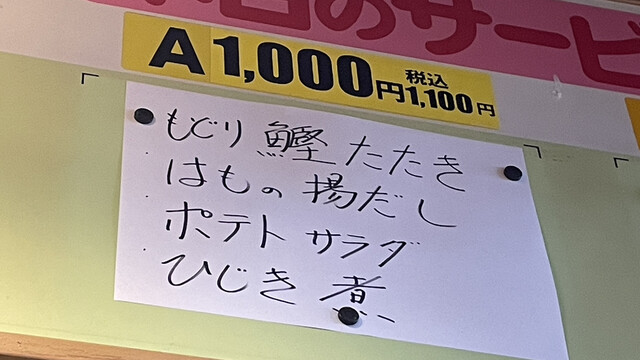 本日のサービ
A 1,000円 税込1,100円
もどり鰹たたき
はもの揚だし
ポテトサラダ
ひじき煮